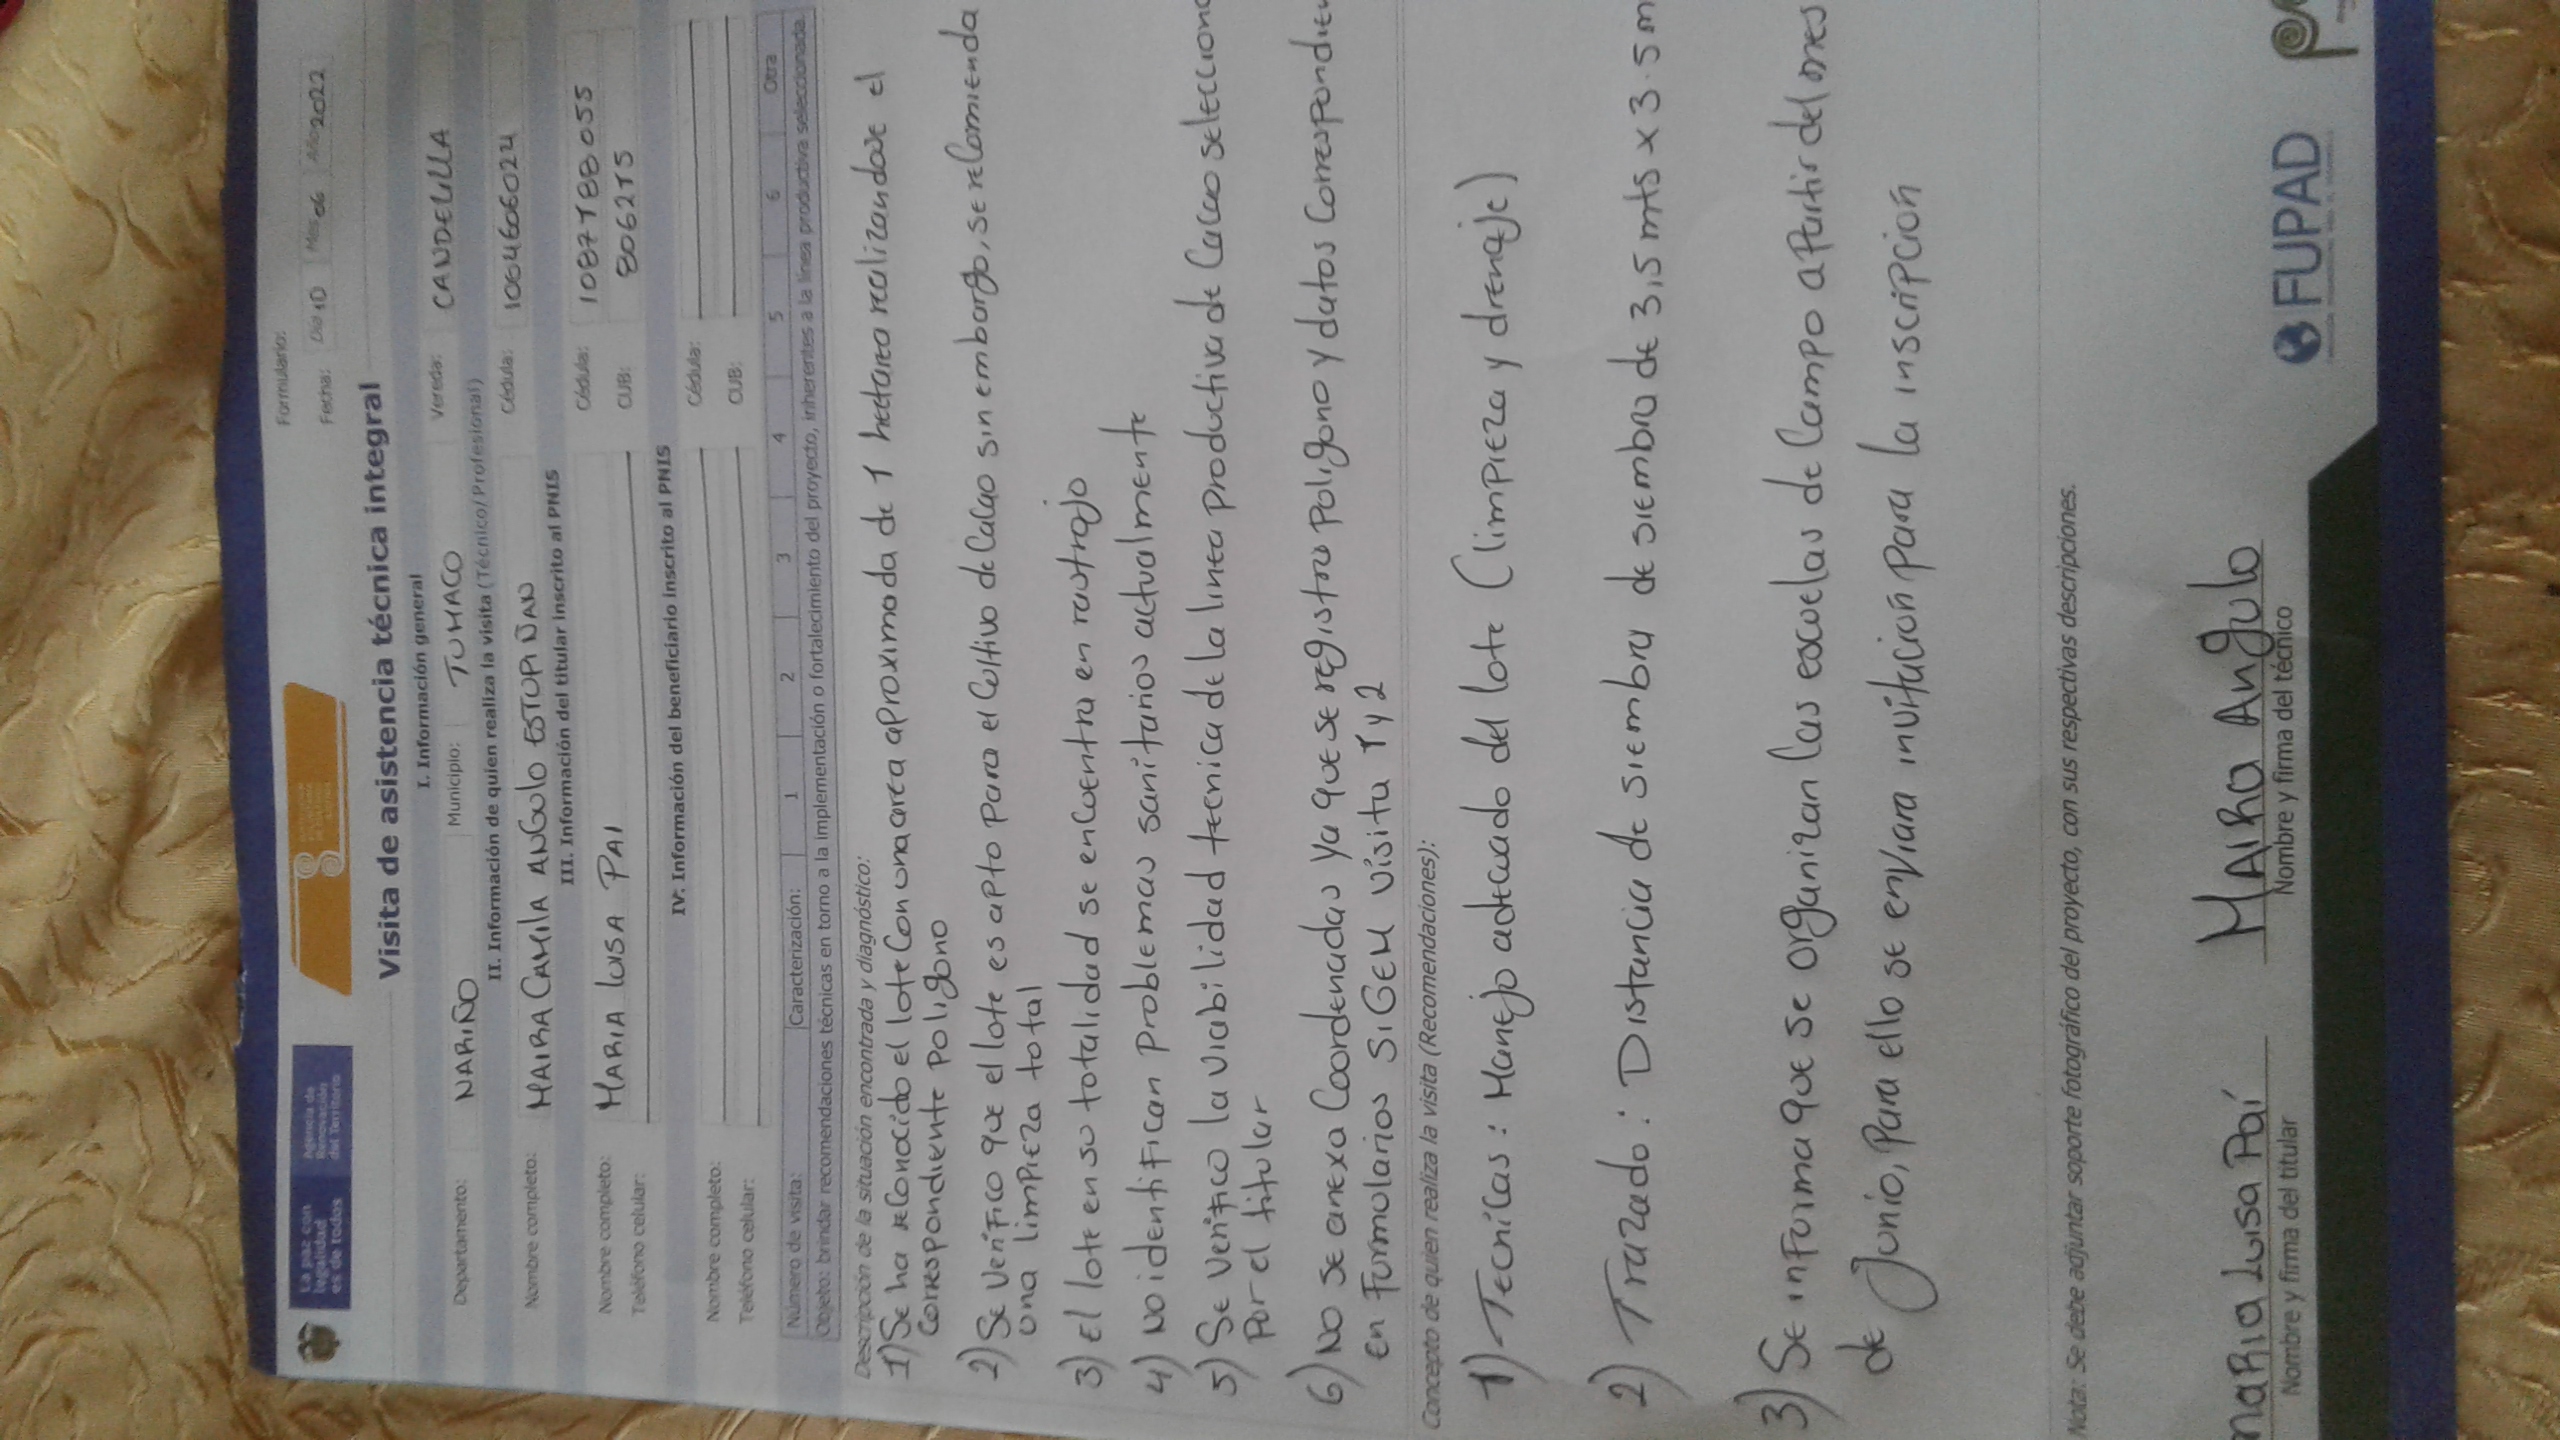 La paz con
legalidad
es de todos
Agencia de
Renovación
del Territorio
Formulario:
Fecha: Día 10 Mes 06 Año 2022
Visita de asistencia técnica integral
I. Información general
Departamento: NARIÑO Municipio: TUMACO Vereda: CANDELILLA
II. Información de quien realiza la visita (Técnico/Profesional)
Nombre completo: MAIRA CAMILA ANGULO ESTUPIÑAN Cédula: 1004606024
III. Información del titular inscrito al PNIS
Nombre completo: MARIA LUISA PAI Cédula: 1087788055
Teléfono celular: CUB: 806275
IV. Información del beneficiario inscrito al PNIS
Nombre completo: Cédula:
Teléfono celular: CUB:
Número de visita: Caracterización: 1 2 3 4 5 6 Otra
Objeto: brindar recomendaciones técnicas en torno a la implementación o fortalecimiento del proyecto, inherentes a la línea productiva seleccionada.
Descripción de la situación encontrada y diagnóstico:
1) Se ha reconocido el lote con una area aproximada de 1 hectarea realizandose el
correspondiente poligono
2) Se verifico que el lote es apto para el cultivo de cacao sin embargo, se recomienda
una limpieza total
3) El lote en su totalidad se encuentra en rastrojo
4) No identifican problemas sanitarios actualmente
5) Se verifico la viabilidad tecnica de la linea productiva de cacao selecciona
por el titular
6) No se anexa coordenadas ya que se registra poligono y datos correspondien
en formularios SIGEM visita 1 y 2
Concepto de quien realiza la visita (Recomendaciones):
1) Tecnicas: Manejo adecuado del lote (limpieza y drenaje)
2) Trazado: Distancia de siembra de siembra de 3,5 mts x 3.5 m
3) Se informa que se organizan las escuelas de campo a partir del mes
de Junio, para ello se enviara invitación para la inscripción
Nota: Se debe adjuntar soporte fotográfico del proyecto, con sus respectivas descripciones.
MARIA LUISA PAÍ MAIRA Angulo
Nombre y firma del titular Nombre y firma del técnico
FUPAD